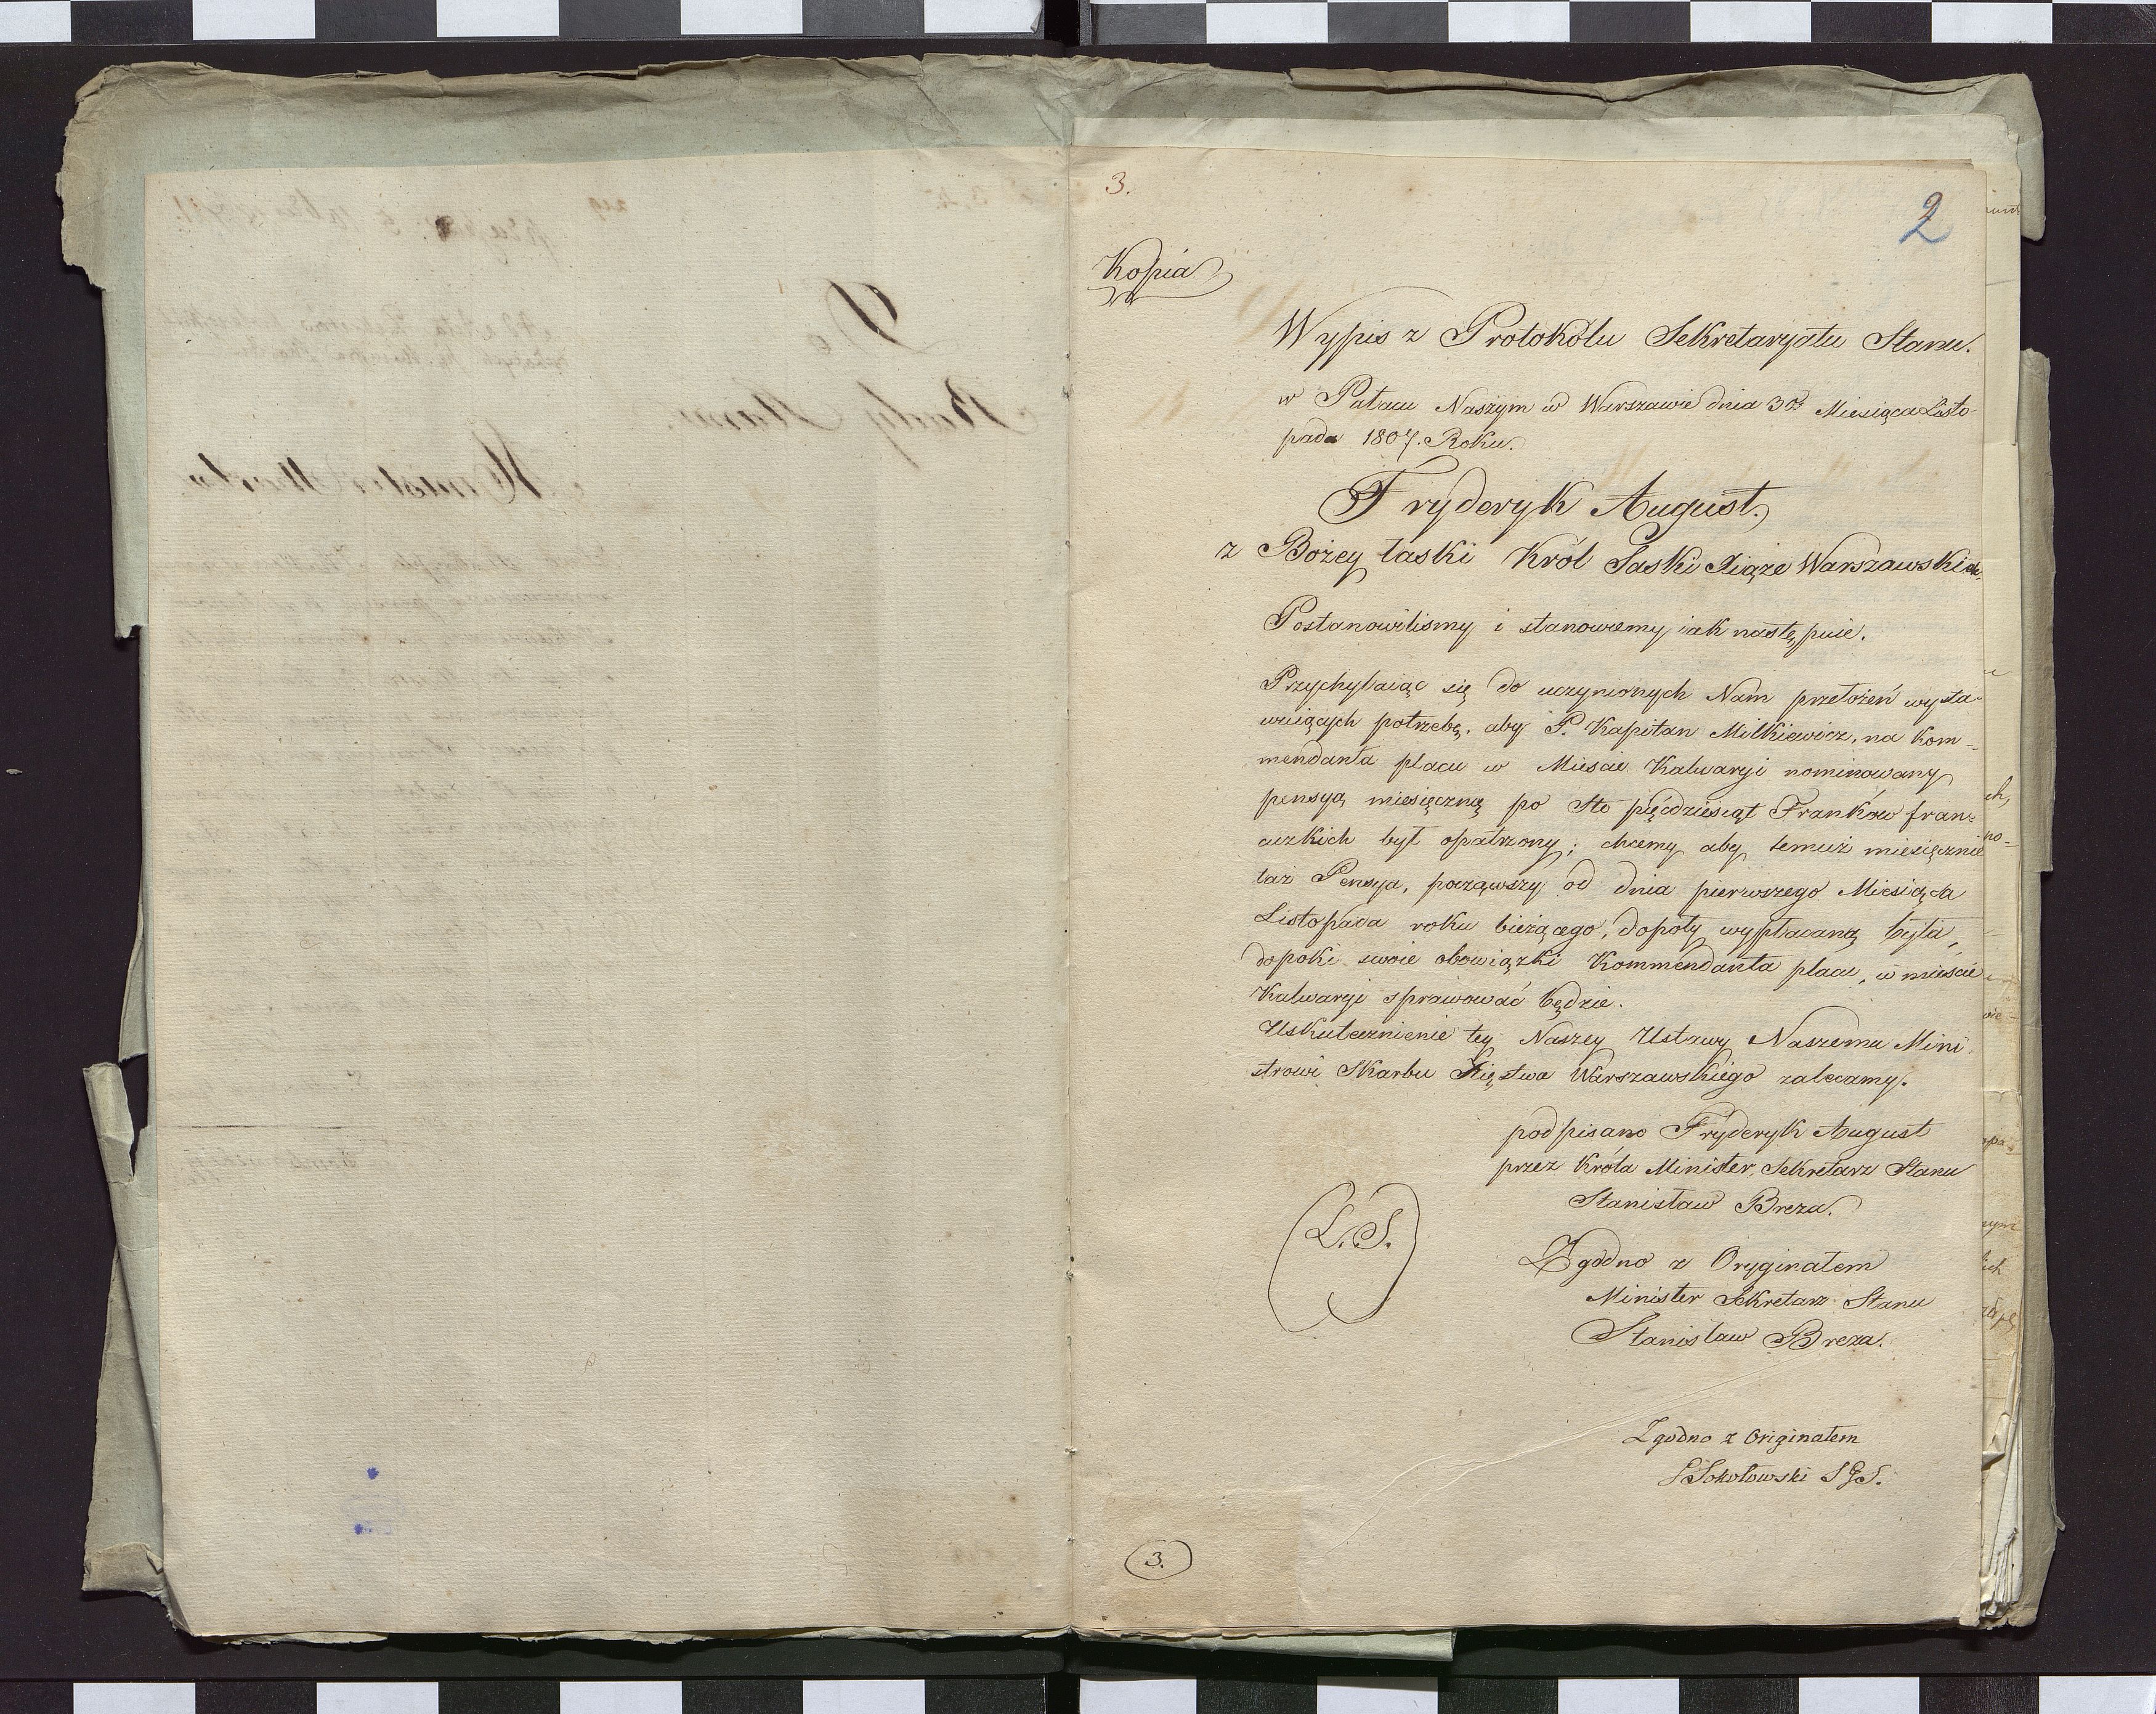 3.
2
Kopia
Wypis z Protokołu Sekretaryatu Stanu.
w Pałacu Naszym w Warszawie dnia 30º Miesiąca Listo-
pada 1807. Roku.
Fryderyk August.
z Bożey łaski Król Saski Xiąże Warszawski etc.
Postanowiliśmy i stanowiemy iak następuie.
Przychylaiąc się do uczynionych Nam przełożeń wysta-
wuiących potrzebę, aby P. Kapitan Milkiewicz, na Kom-
mendanta placu w Mieście Kalwaryi nominowany
pensyą miesięczną po Sto pięćdziesiąt Franków fran-
cuzkich był opatrzony; chcemy aby temuż miesięcznie
taż Pensya, począwszy od dnia pierwszego Miesiąca
Listopada roku bieżącego, dopoty wypłacaną była,
dopoki swoie obowiązki Kommendanta placu, w mieście
Kalwaryi sprawować będzie.
Uskutecznienie tey Naszey Ustawy Naszemu Mini-
strowi Skarbu Xięstwa Warszawskiego zalecamy.
podpisano Fryderyk August
przez Króla Minister, Sekretarz Stanu
Stanisław Breza.
L.S.
Zgodno z Oryginałem
Minister Sekretarz Stanu
Stanisław Breza.
Zgodno z Originałem
Sokołowski SJS.
3.